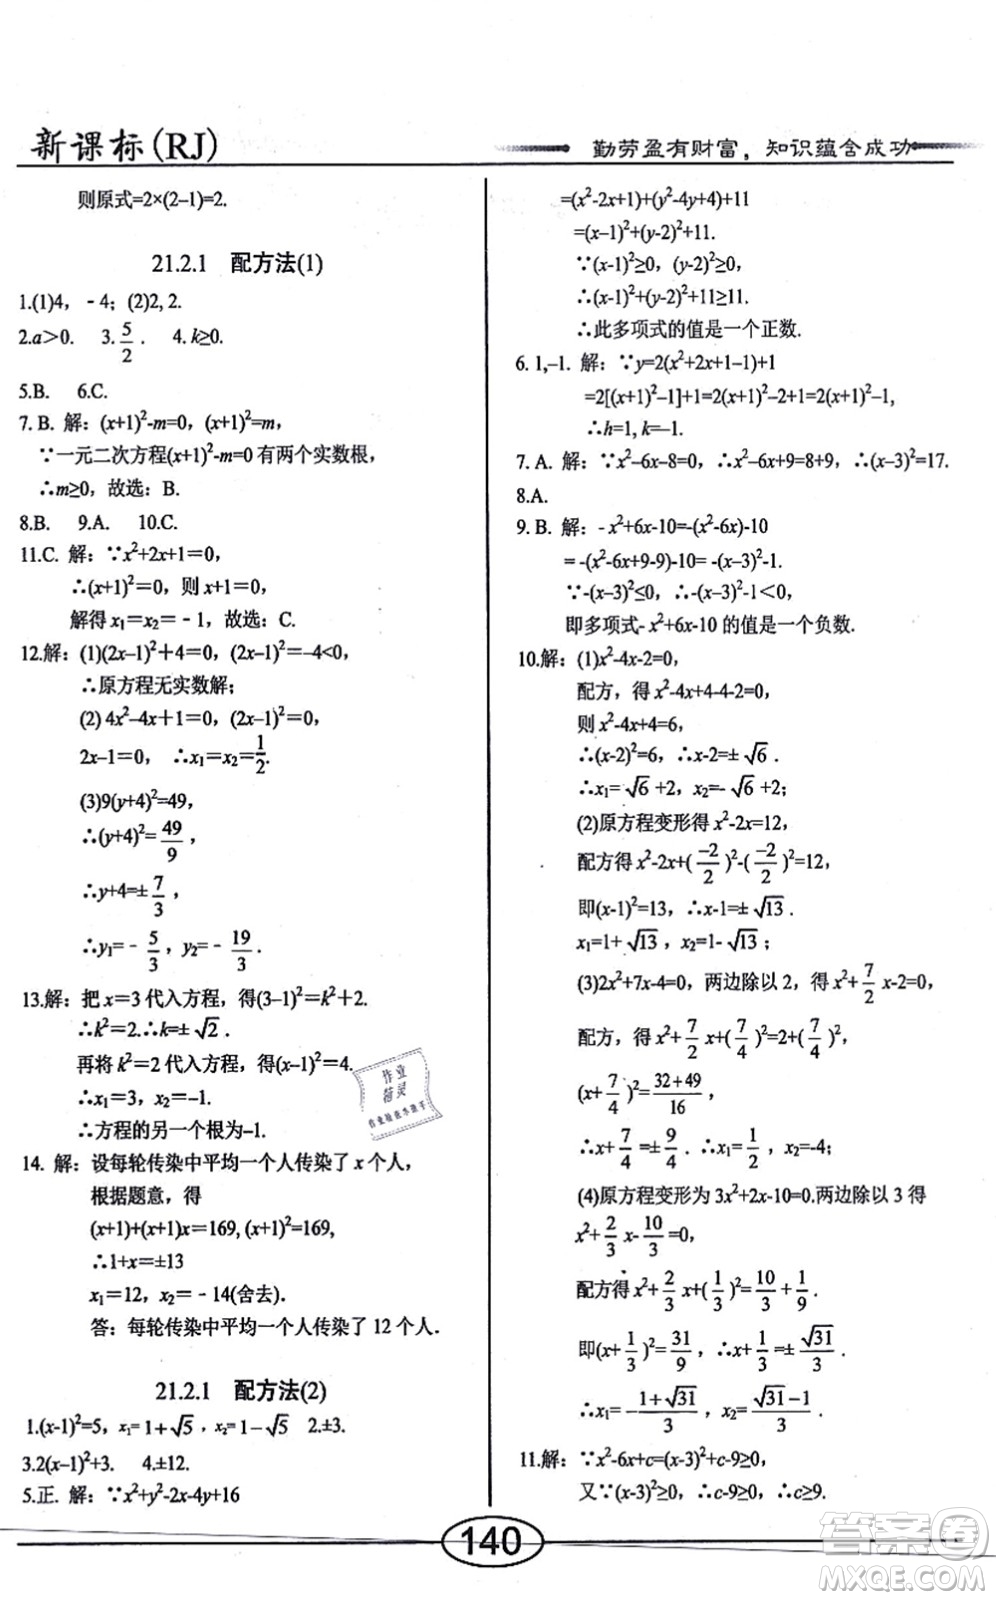 新课标(RJ)
勤劳盈有财富，知识蕴含成功
则原式=2×(2–1)=2.
21.2.1 配方法(1)
1.(1)4，﹣4；(2)2, 2.
2.a＞0. 3. 5/2 . 4. k≥0.
5.B. 6.C.
7. B. 解：(x+1)²-m=0，(x+1)²=m，
∵一元二次方程(x+1)²-m=0 有两个实数根，
∴m≥0，故选：B.
8.B. 9.A. 10.C.
11.C. 解：∵x²+2x+1＝0，
∴(x+1)²＝0，则 x+1＝0，
解得 x₁＝x₂＝﹣1，故选：C.
12.解：(1)(2x–1)²＋4＝0，(2x–1)²＝–4<0，
∴原方程无实数解；
(2) 4x²–4x＋1＝0，(2x–1)²＝0，
2x–1＝0， ∴x₁＝x₂＝1/2.
(3)9(y+4)²=49，
∴(y+4)²= 49/9 ，
∴y+4=± 7/3 ，
∴y₁=﹣ 5/3 ，y₂=﹣ 19/3 .
13.解：把 x＝3 代入方程，得(3–1)²＝k²＋2.
∴k²＝2.∴k＝± √2 .
再将 k²＝2 代入方程，得(x–1)²＝4.
∴x₁＝3，x₂＝–1.
∴方程的另一个根为–1.
14. 解：设每轮传染中平均一个人传染了 x 个人，
根据题意，得
(x+1)+(x+1)x＝169, (x+1)²=169,
∴1+x＝±13
x₁＝12，x₂＝﹣14(舍去).
答：每轮传染中平均一个人传染了 12 个人.
21.2.1 配方法(2)
1.(x-1)²=5，x₁=1+√5 , x₂=1−√5 2.±3.
3.2(x–1)²+3. 4.±12.
5.正. 解：∵x²+y²-2x-4y+16
=(x²-2x+1)+(y²-4y+4)+11
=(x–1)²+(y-2)²+11.
∵(x-1)²≥0，(y-2)²≥0，
∴(x-1)²+(y-2)²+11≥11.
∴此多项式的值是一个正数.
6. 1,–1. 解：∵y=2(x²+2x+1–1)+1
=2[(x+1)²–1]+1=2(x+1)²–2+1=2(x+1)²–1,
∴h=1, k=–1.
7. A. 解：∵x²–6x–8=0，∴x²–6x+9=8+9，∴(x–3)²=17.
8.A.
9. B. 解：- x²+6x-10=-(x²-6x)-10
= -(x²-6x+9-9)-10= -(x–3)²-1.
∵-(x–3)²≤0，∴-(x–3)²-1＜0，
即多项式- x²+6x-10 的值是一个负数.
10.解：(1)x²-4x-2=0，
配方，得 x²-4x+4-4-2=0，
则 x²-4x+4=6，
∴(x-2)²=6，∴x-2=± √6 .
∴x₁= √6 +2，x₂=- √6 +2；
(2)原方程变形得 x²-2x=12，
配方得 x²-2x+( -2/2 )²-( -2/2 )²=12，
即(x-1)²=13，∴x-1=± √13 .
x₁=1+ √13，x₂=1- √13；
(3)2x²+7x-4=0，两边除以 2，得 x²+ 7/2 x-2=0，
配方，得 x²+ 7/2 x+( 7/4 )²=2+( 7/4 )²，
(x+ 7/4 )²= (32+49)/16 ，
∴x+ 7/4 =± 9/4 ，∴x₁= 1/2 ，x₂=-4；
(4)原方程变形为 3x²+2x-10=0.两边除以 3 得
x²+ 2/3 x- 10/3 =0，
配方得 x²+ 2/3 x+( 1/3 )²= 10/3 + 1/9 ，
即(x+ 1/3 )²= 31/9 ，∴x+ 1/3 =± √31/3 ，
∴x₁= − (1+√31)/3 ，x₂= (√31−1)/3 .
11.解：∵x²-6x+c=(x-3)²+c-9≥0
又∵(x-3)²≥0，∴c-9≥0，∴c≥9.
作业
精灵
140
答案圈
MXQE.COM